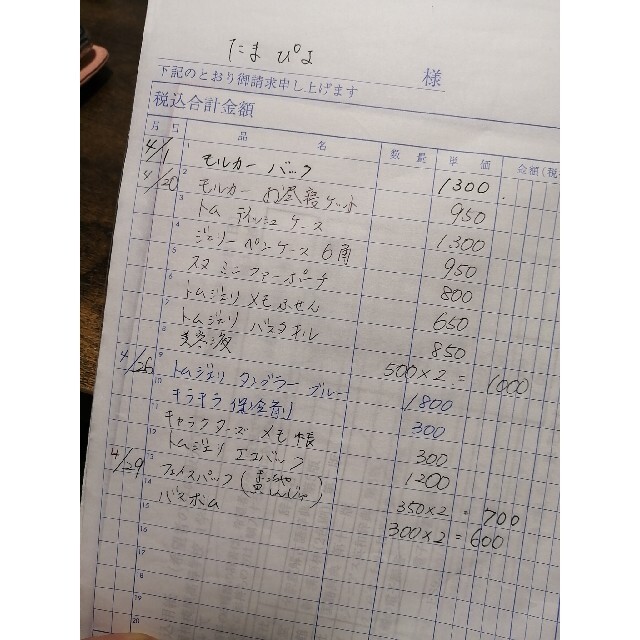 たまぴよ 様
下記のとおり御請求申し上げます
税込合計金額
月 日 品 名 数 量 単 価 金額(税
4/1 1 モルカー バック 1300
4/20 2 モルカー お昼寝ケット 950
3 トム ティッシュケース 1300
4 ジェリー ペンケース 6角 950
5 スヌ ミニファーポーチ 800
6 トムジェリ メモふせん 650
7 トムジェリ バスタオル 850
8 美容液 500×2 = 1000
4/26 9 トムジェリ タンブラー ブルー 1800
10 キラキラ 保全剤 300
11 キャラクターズ メモ帳 300
12 トムジェリ エコバック 1200
4/29 13 フェイスパック 350×2 = 700
14 バスボム 300×2 = 600
15
16
17
18
19
20